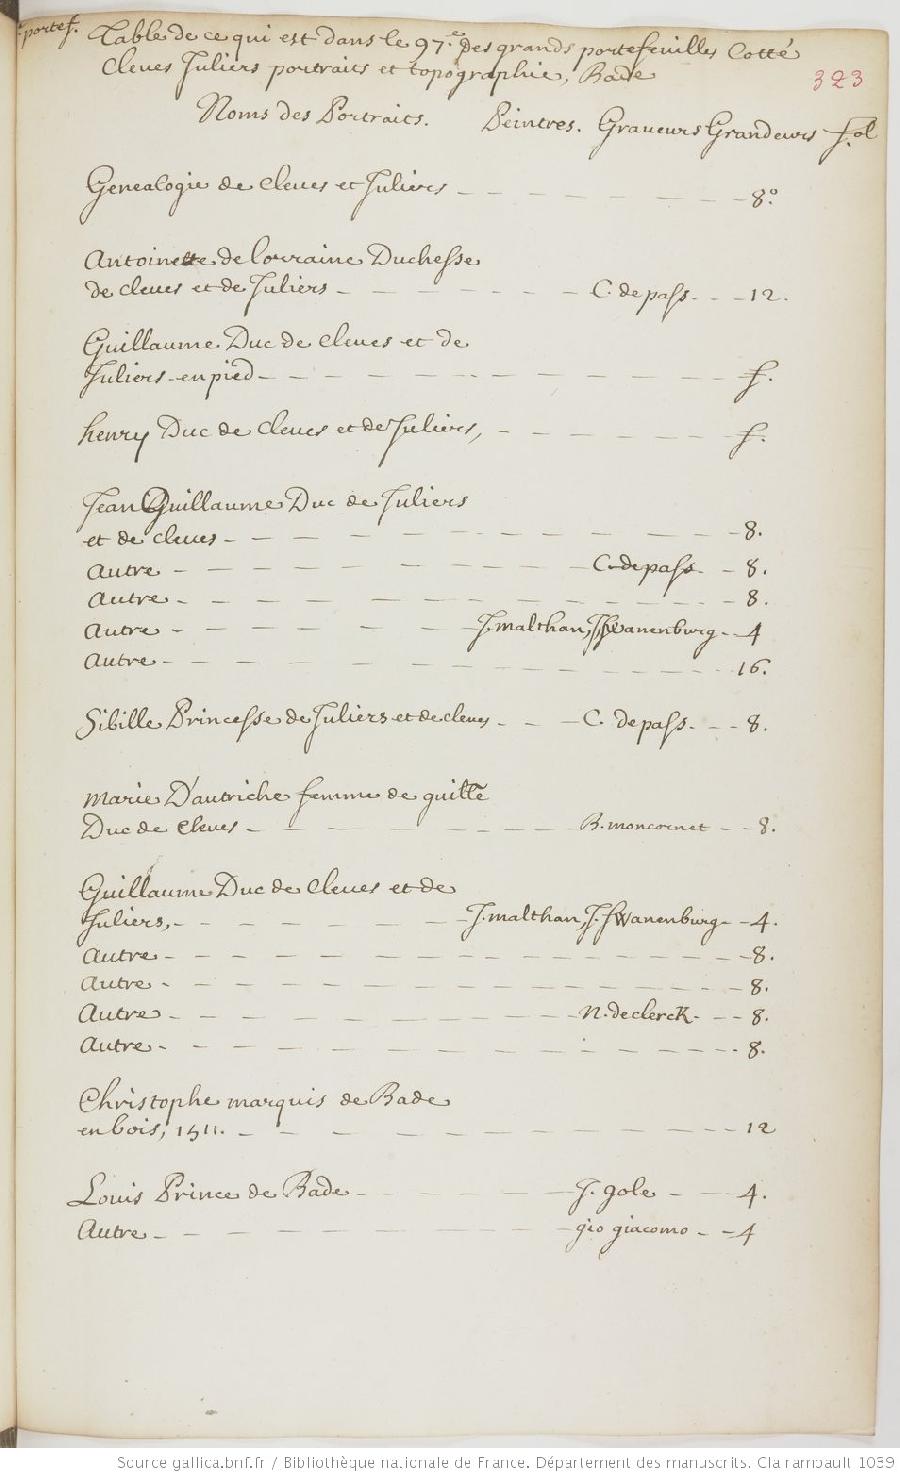 portef. Table de ce qui est dans le 97.e des grands portefeuilles Cotté
Cleves Juliers portraits et topographie, Bade
323
Noms des Portraits. Peintres. Graveurs Grandeurs fol
Genealogie de Cleves et Juliers 8.o
Antoinette de lorraine Duchesse
de Cleves et de Juliers C. de pass. 12.
Guillaume Duc de Cleves et de
Juliers en pied f.
henry Duc de Cleves et de Juliers, f.
Jean Guillaume Duc de Juliers
et de Cleves 8.
Autre C. de pass. 8.
Autre 8.
Autre J. malthan, J. Swanenburg 4
Autre 16.
Sibille Princesse de Juliers et de Cleves C. de pass. 8.
Marie D'autriche femme de guille
Duc de Cleves B. moncornet 8.
Guillaume Duc de Cleves et de
Juliers, J. malthan, J. Swanenburg 4.
Autre 8.
Autre 8.
Autre N. de clerck 8.
Autre 8.
Christophe marquis de Bade
en bois, 1511. 12
Louis Prince de Bade J. gole 4.
Autre gio giacomo 4
Source gallica.bnf.fr / Bibliothèque nationale de France. Département des manuscrits. Clairambault 1039